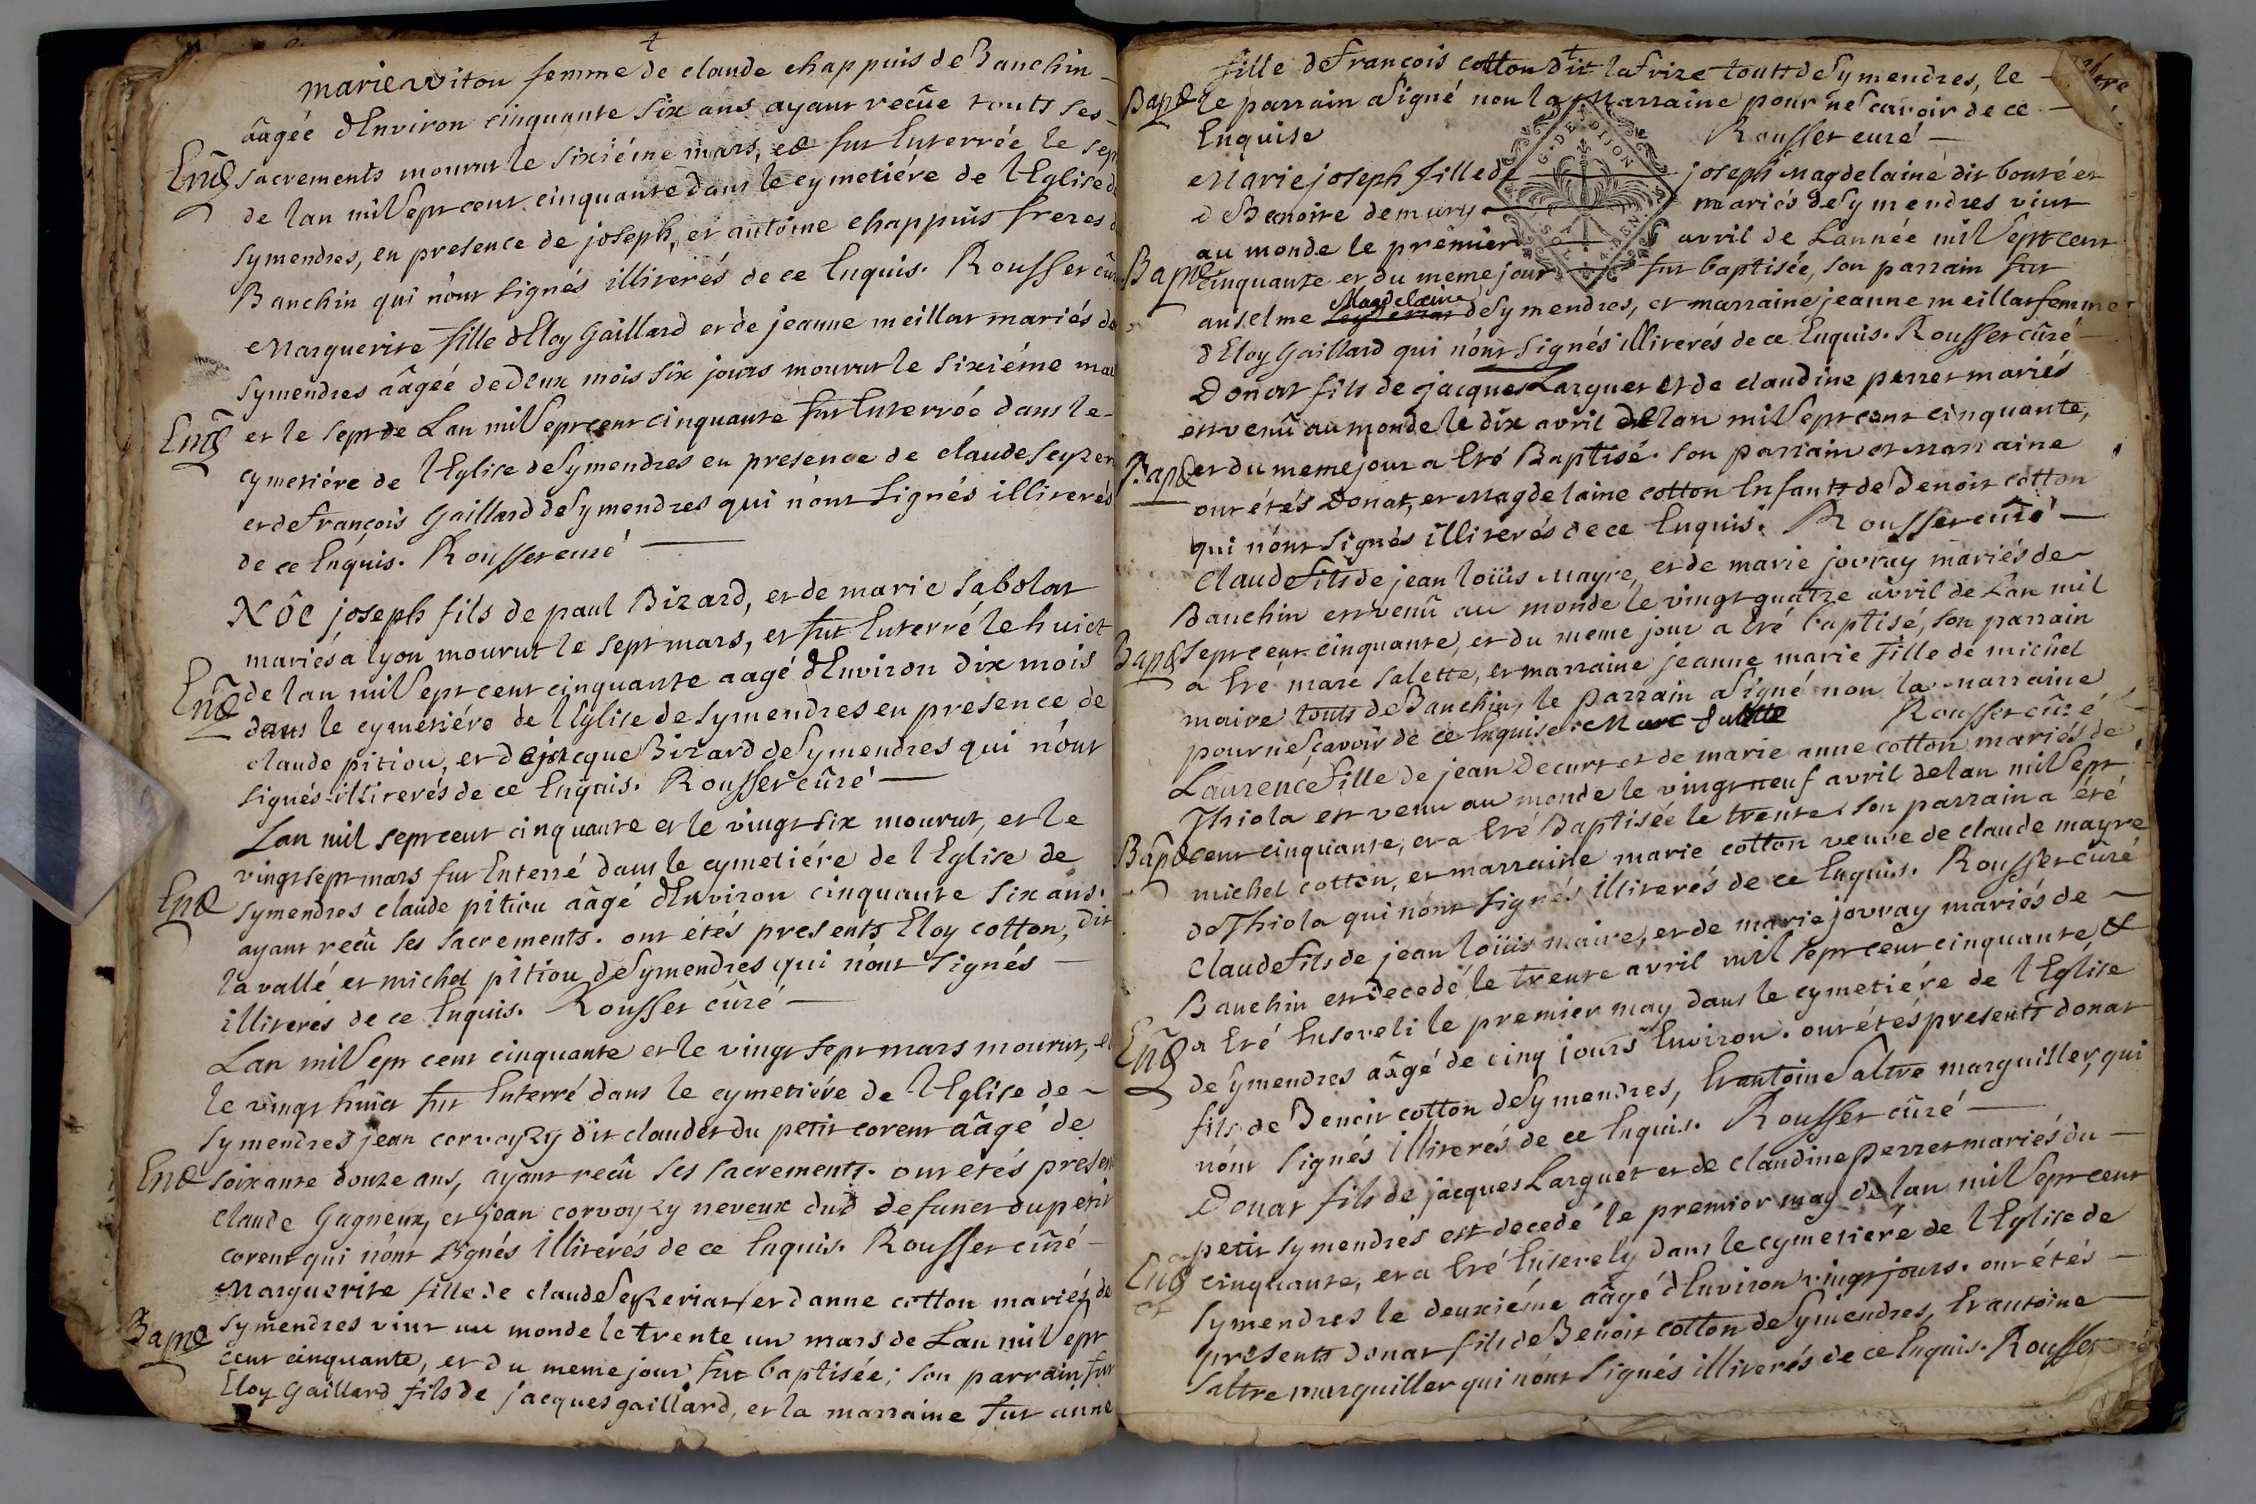 4
marie witou femme de claude chappuis de Banchin
âagée d'Environ cinquante six ans ayant recûe touts ses
Ene sacrements mourut le sixiéme mars, et fut Enterrée le sep
de lan mil sept cent cinquante dans le cymetiére de l'Eglise de
symendres, en presence de joseph, et antoine chappuis freres d
Banchin qui n'ont signés illiterés de ce Enquis. Rousset cur
Marguerite fille d'Eloy Gaillard et de jeanne meillat mariés de
symendres âagée de deux mois six jours mourut le sixiéme mar
Ene et le sept de Lan mil sept cent cinquante fut Enterrée dans le
cymetiére de l'Eglise de symendres en presence de claude seyzer
et de françois Gaillard de symendres qui n'ont signés illiterés
de ce Enquis. Rousset curé
joseph fils de paul Bizard, et de marie sabolat
mariés a lyon mourut le sept mars, et fut Enterré le huict
Ene de lan mil sept cent cinquante aagé d'Environ dix mois
dans le cymetiére de l'Eglise de symendres en presence de
claude pitiou, et de jacque Bizard de symendres qui n'ont
signés illiterés de ce Enquis. Rousset curé
Lan mil sept cent cinquante et le vingt six mourut, et le
vingt sept mars fut Enterré dans le cymetiére de l'Eglise de
Ene symendres claude pitiou âagé d'Environ cinquante six ans.
ayant recû ses sacrements. ont étés presents Eloy cotton, dit
la vallé et michel pitiou de symendres qui n'ont signés
illiterés de ce Enquis. Rousset curé
Lan mil sept cent cinquante et le vingt sept mars mourut, et
le vingt huict fut Enterré dans le cymetiére de l'Eglise de
symendres jean corvoyzy dit claudet du petit corent âagé de
Ene soixante douze ans, ayant recû ses sacrements. ont etés presen
claude Gagneux, et jean corvoyzy neveux dud defunct du petit
corent qui n'ont signés illiterés de ce Enquis. Rousset curé
Marguerite fille de claude seyzeriat et d'anne cotton mariés de
Bapte symendres vint au monde le trente un mars de Lan mil sept
cent cinquante, et du meme jour fut baptisée; son parrain fut
Eloy Gaillard fils de jacques gaillard, et la marraine fut anne
fille de françois cotton dit la frize touts de symendres, le
Bapte le parrain a signé non la Marraine pour ne sçavoir de ce
Enquise Rousset curé
G. DE DIJON
Marie joseph fille de joseph Magdelaine dit bouté et
de Benoite demury mariés de symendres vint
au monde le premier avril de Lannée mil sept cent
Bapte cinquante et du meme jour fut baptisée, son parrain fut
Magdelaine
anselme de symendres, et marraine jeanne meillat femme
d'Eloy Gaillard qui n'ont signés illiterés de ce Enquis. Rousset curé
Donat fils de jacques Larguet et de claudine perret mariés
est venû au monde le dix avril de lan mil sept cent cinquante,
Bapte et du meme jour a Eté Baptisé. son parrain et Marraine
ont étés Donat, et Magdelaine cotton Enfants de Benoit cotton
qui n'ont signés illiterés de ce Enquis. Rousset curé
Claude fils de jean loüis Mayre, et de marie jovray mariés de
Banchin est venû au monde le vingt quatre avril de Lan mil
Bapte sept cent cinquante, et du meme jour a Eté baptisé, son parrain
a Eté marc salette, et marraine jeanne marie fille de michel
maire touts de Banchin, le parrain a signé non la marraine
pour ne sçavoir de ce Enquise. Marc Salette Rousset curé
Laurence fille de jean Decurt et de marie anne cotton mariés de
Thiola est venu au monde le vingt neuf avril de lan mil sept
Bapte cent cinquante, et a Eté Baptisée le trente. son parrain a été
michel cotton, et marraine marie cotton veuve de claude mayre
de Thiola qui n'ont signés illiterés de ce Enquis. Rousset curé
Claude fils de jean loüis maire, et de marie jovray mariés de
Banchin est decedé le trente avril mil sept cent cinquante &
Ene a Eté Enseveli le premier may dans le cymetiére de l'Eglise
de symendres âagé de cinq jours Environ. ont étés presents donat
fils de Benoit cotton de symendres, Et antoine saltre marguiller, qui
n'ont signés illiterés de ce Enquis. Rousset curé
Donat fils de jacques Larguet et de claudine perret mariés du
petit symendres est decedé le premier may de lan mil sept cent
Ene cinquante, et a Eté Ensevely dans le cymetiére de l'Eglise de
symendres le deuxiéme âagé d'Environ vingt jours. ont étés
presents donat fils de Benoit cotton de symendres, Et antoine
saltre marguiller qui n'ont signés illiterés de ce Enquis. Rousset